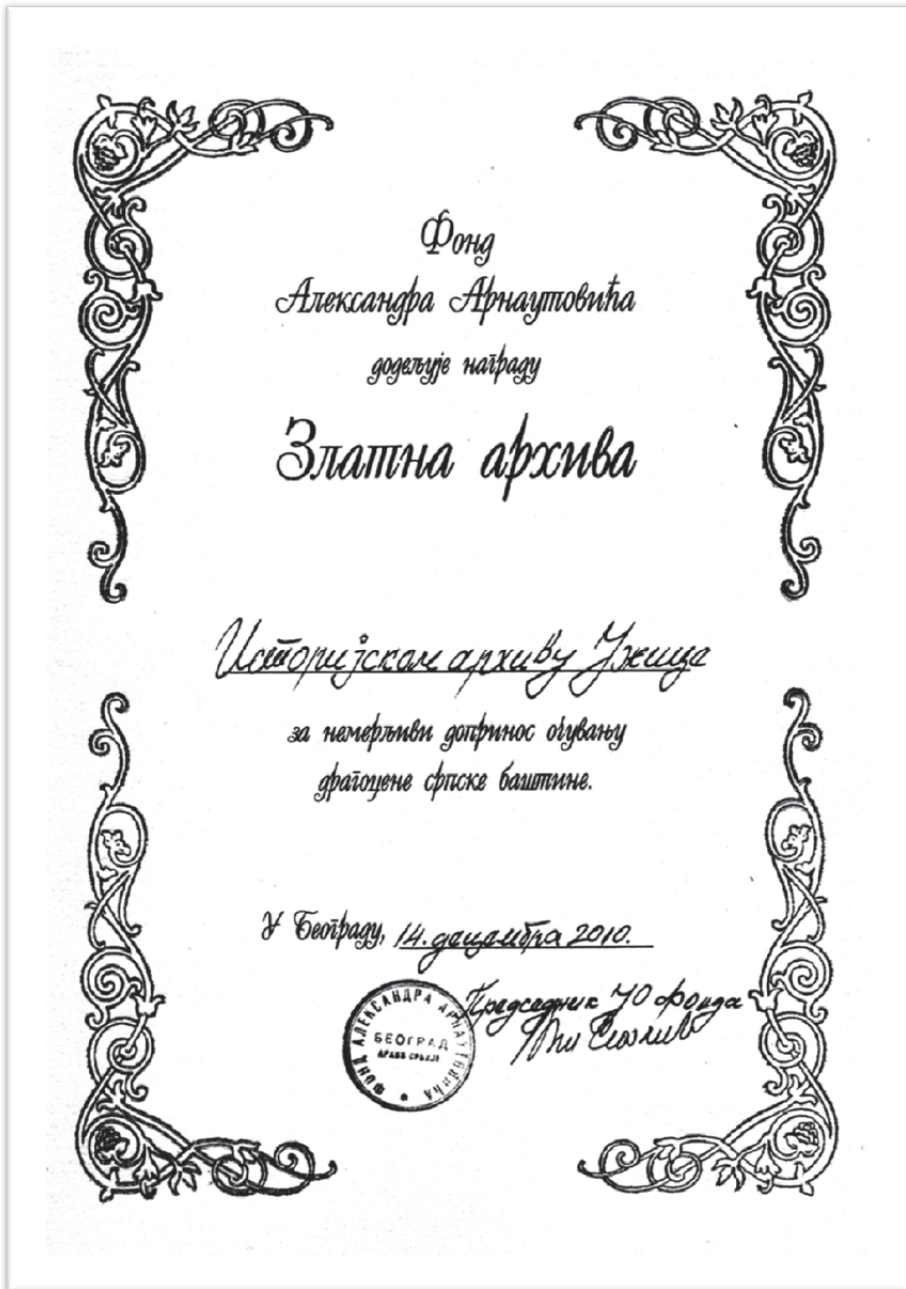 Фонд
Александра Арнаутовића
додељује награду
Златна архива
Историјском архиву Ужице
за немерљиви допринос очувању
драгоцене српске баштине.
У Београду, 14. децембра 2010.
Председник УО фонда
ФОНД АЛЕКСАНДРА АРНАУТОВИЋА
БЕОГРАД
АРХИВ СРБИЈЕ